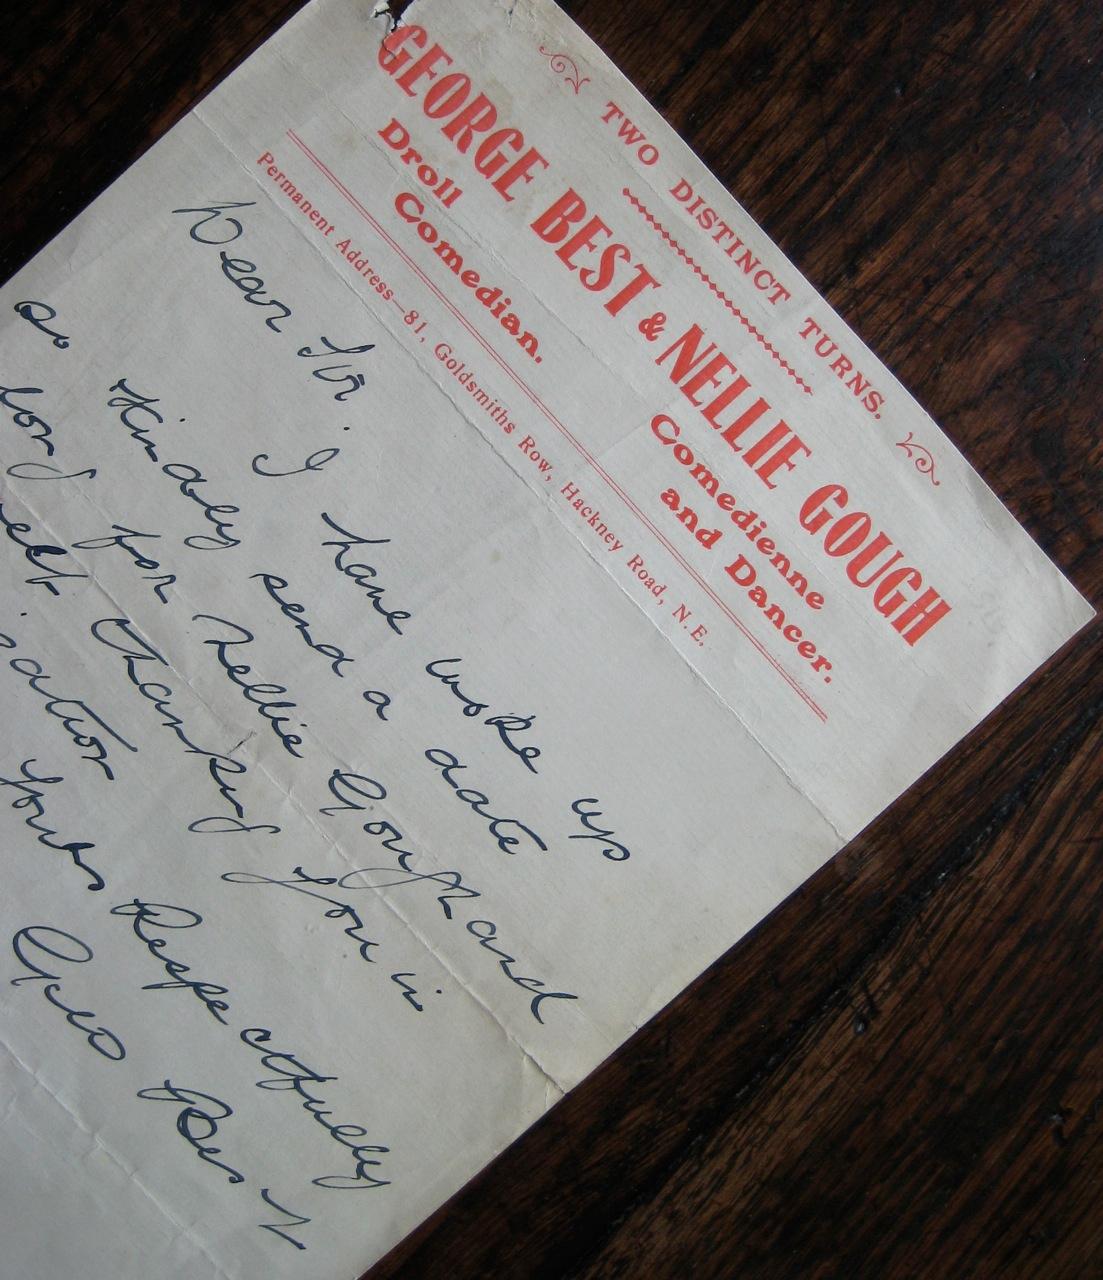 TWO DISTINCT TURNS.
GEORGE BEST & NELLIE GOUGH
Droll Comedian.
Comedienne and Dancer.
Permanent Address—81, Goldsmiths Row, Hackney Road, N.E.
Dear Sir
I have woke up
so kindly send a date
for Nellie Gough and
Thanking you in
Yours Respectfully
Geo Best